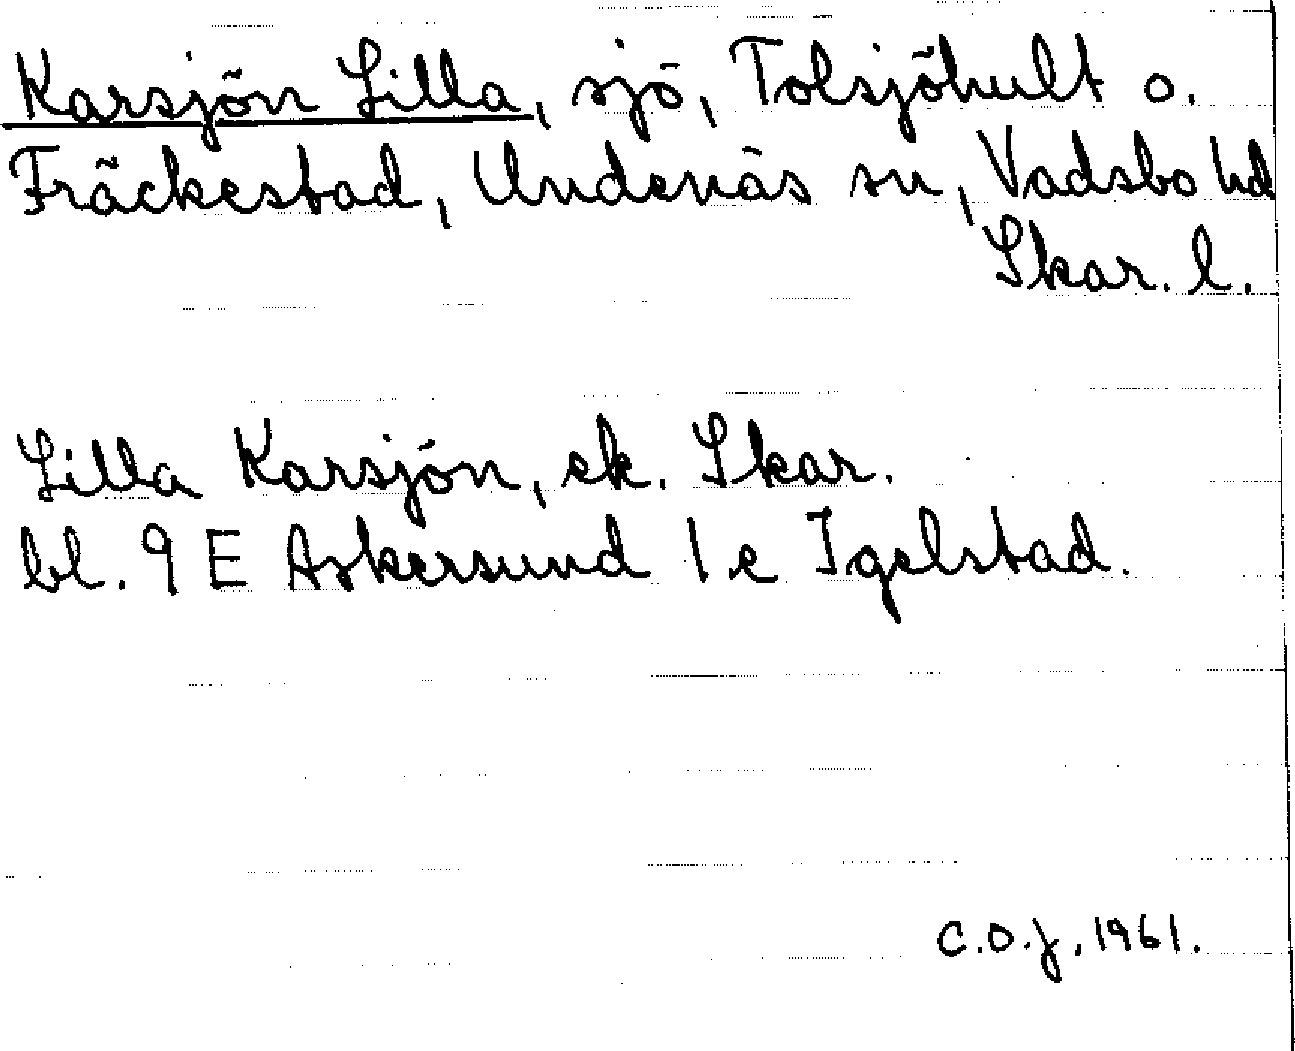 Karsjön Lilla, sjö, Tolsjöhult o.
Fräckestad, Undenäs sn, Vadsbo hd
Skar. l.
Lilla Karsjön, ek. Skar.
bl. 9 E Askersund 1 e Igelstad.
C.O.J, 1961.